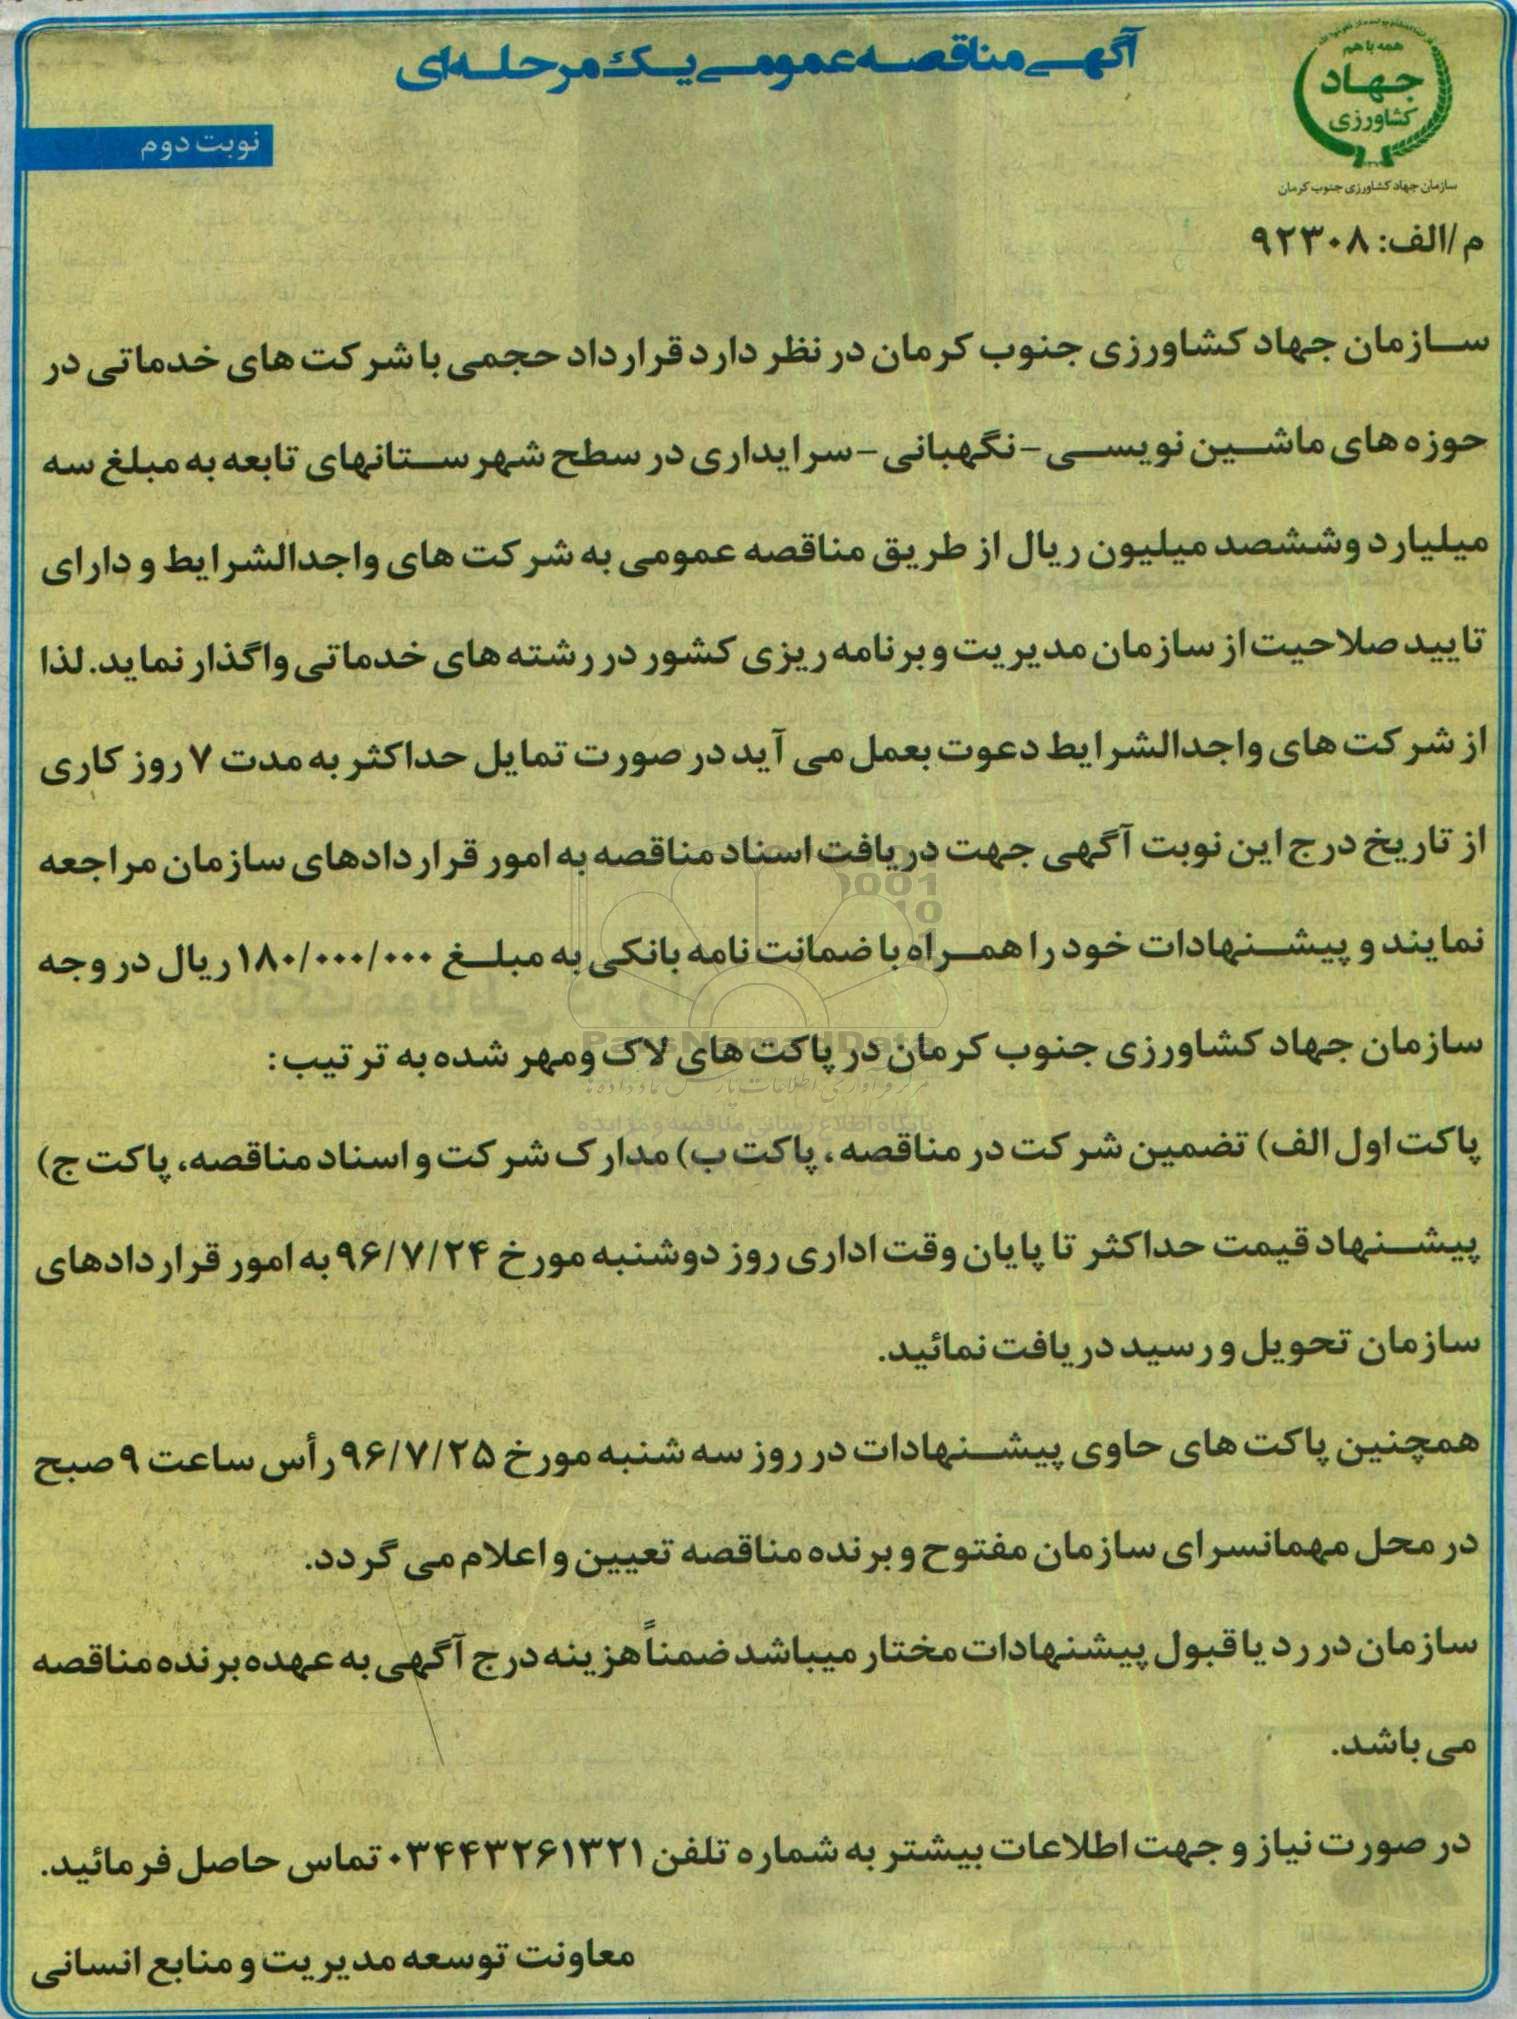 آگهی مناقصه عمومی یک مرحله‌ای
همه با هم
جهاد
کشاورزی
سازمان جهاد کشاورزی جنوب کرمان
نوبت دوم
م/الف: ۹۲۳۰۸
سازمان جهاد کشاورزی جنوب کرمان در نظر دارد قرارداد حجمی با شرکت های خدماتی در
حوزه های ماشین نویسی - نگهبانی - سرایداری در سطح شهرستانهای تابعه به مبلغ سه
میلیارد و ششصد میلیون ریال از طریق مناقصه عمومی به شرکت های واجدالشرایط و دارای
تایید صلاحیت از سازمان مدیریت و برنامه ریزی کشور در رشته های خدماتی واگذار نماید. لذا
از شرکت های واجدالشرایط دعوت بعمل می آید در صورت تمایل حداکثر به مدت ۷ روز کاری
از تاریخ درج این نوبت آگهی جهت دریافت اسناد مناقصه به امور قراردادهای سازمان مراجعه
نمایند و پیشنهادات خود را همراه با ضمانت نامه بانکی به مبلغ ۱۸۰/۰۰۰/۰۰۰ ریال در وجه
سازمان جهاد کشاورزی جنوب کرمان در پاکت های لاک ومهر شده به ترتیب:
پاکت اول الف) تضمین شرکت در مناقصه، پاکت ب) مدارک شرکت و اسناد مناقصه، پاکت ج)
پیشنهاد قیمت حداکثر تا پایان وقت اداری روز دوشنبه مورخ ۹۶/۷/۲۴ به امور قراردادهای
سازمان تحویل و رسید دریافت نمائید.
همچنین پاکت های حاوی پیشنهادات در روز سه شنبه مورخ ۹۶/۷/۲۵ رأس ساعت ۹ صبح
در محل مهمانسرای سازمان مفتوح و برنده مناقصه تعیین و اعلام می گردد.
سازمان در رد یا قبول پیشنهادات مختار میباشد ضمناً هزینه درج آگهی به عهده برنده مناقصه
می باشد.
در صورت نیاز و جهت اطلاعات بیشتر به شماره تلفن ۰۳۴۴۳۲۶۱۳۲۱ تماس حاصل فرمائید.
معاونت توسعه مدیریت و منابع انسانی